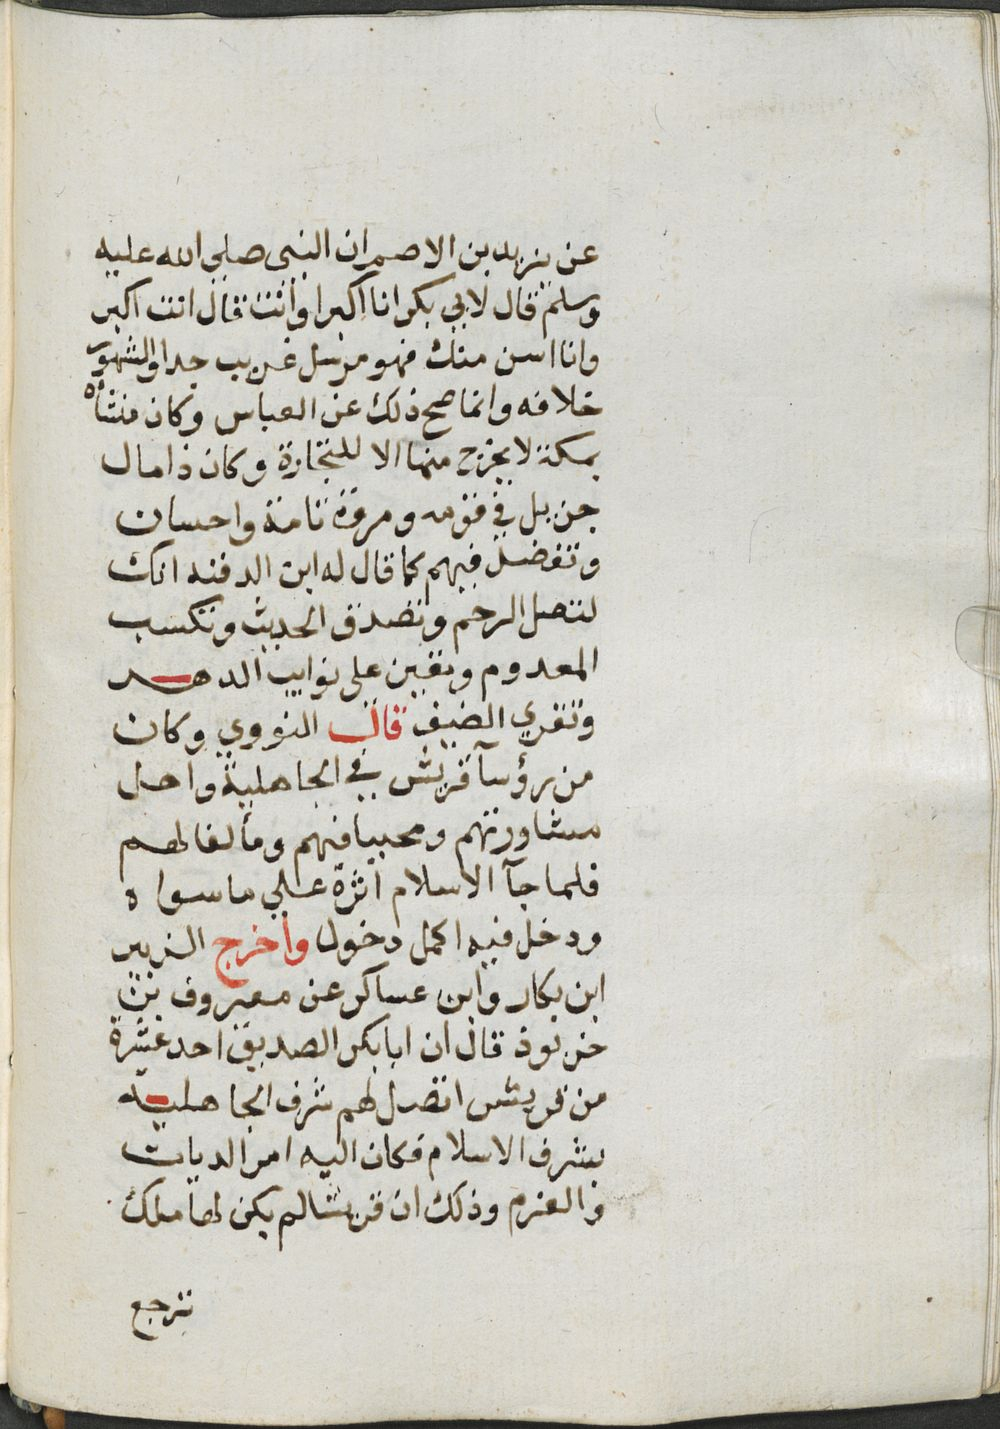 عن يزيد بن الاصم ان النبي صلي الله عليه
وسلم قال لابي بكر انا اكبر او انت قال انت اكبر
وانا اسن منك فهو مرسل غريب جدا والمشهور
خلافه وانما صح ذلك عن العباس وكان منشأه
بمكة لا يخرج منها الا للتجارة وكان ذا مال
جزيل في قومه ومروة تامة واحسان
وتفضل فيهم كما قال له ابن الدغنه انك
لتصل الرحم وتصدق الحديث وتكسب
المعدوم وتعين على نوايب الدهـر
وتقري الضيف قال النووي وكان
من رؤسآ قريش في الجاهلية واهل
مشاورتهم ومحببا فيهم ومألفا لهم
فلما جآ الاسلام اثرة علي ما سواه
ودخل فيه اكمل دخول واخرج الزبير
ابن بكار وابن عساكر عن معروف بن
خربوذ قال ان ابا بكر الصديق احد عشرة
من قريش اتصل لهم شرف الجاهلية
بشرف الاسلام فكان اليه امر الديات
والغرم وذلك ان قريشا لم يكن لها ملك
ترجع